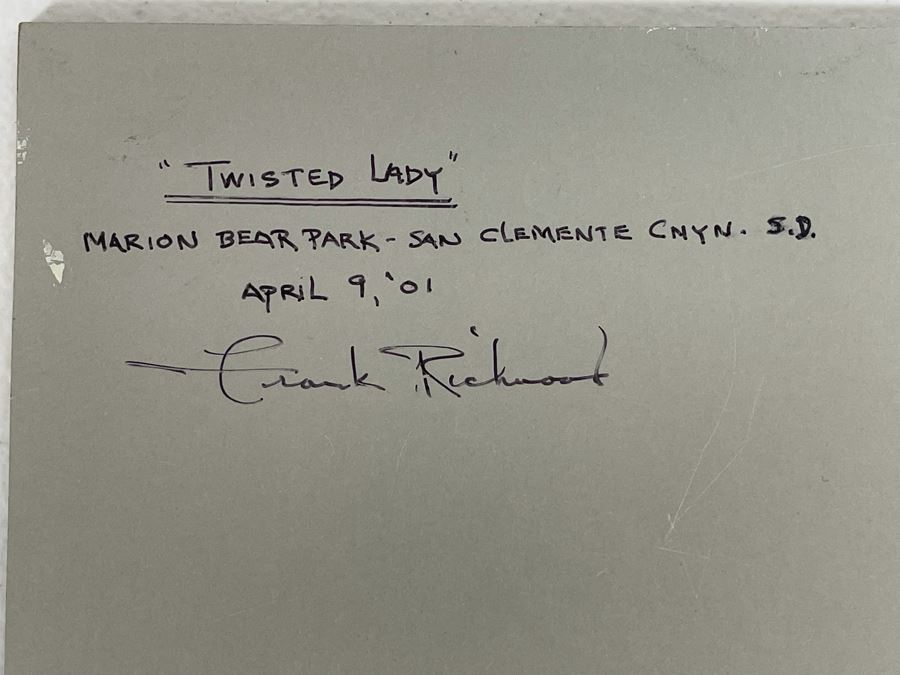 "TWISTED LADY"
MARION BEAR PARK - SAN CLEMENTE CNYN. S.D.
APRIL 9, '01
Frank Richwood